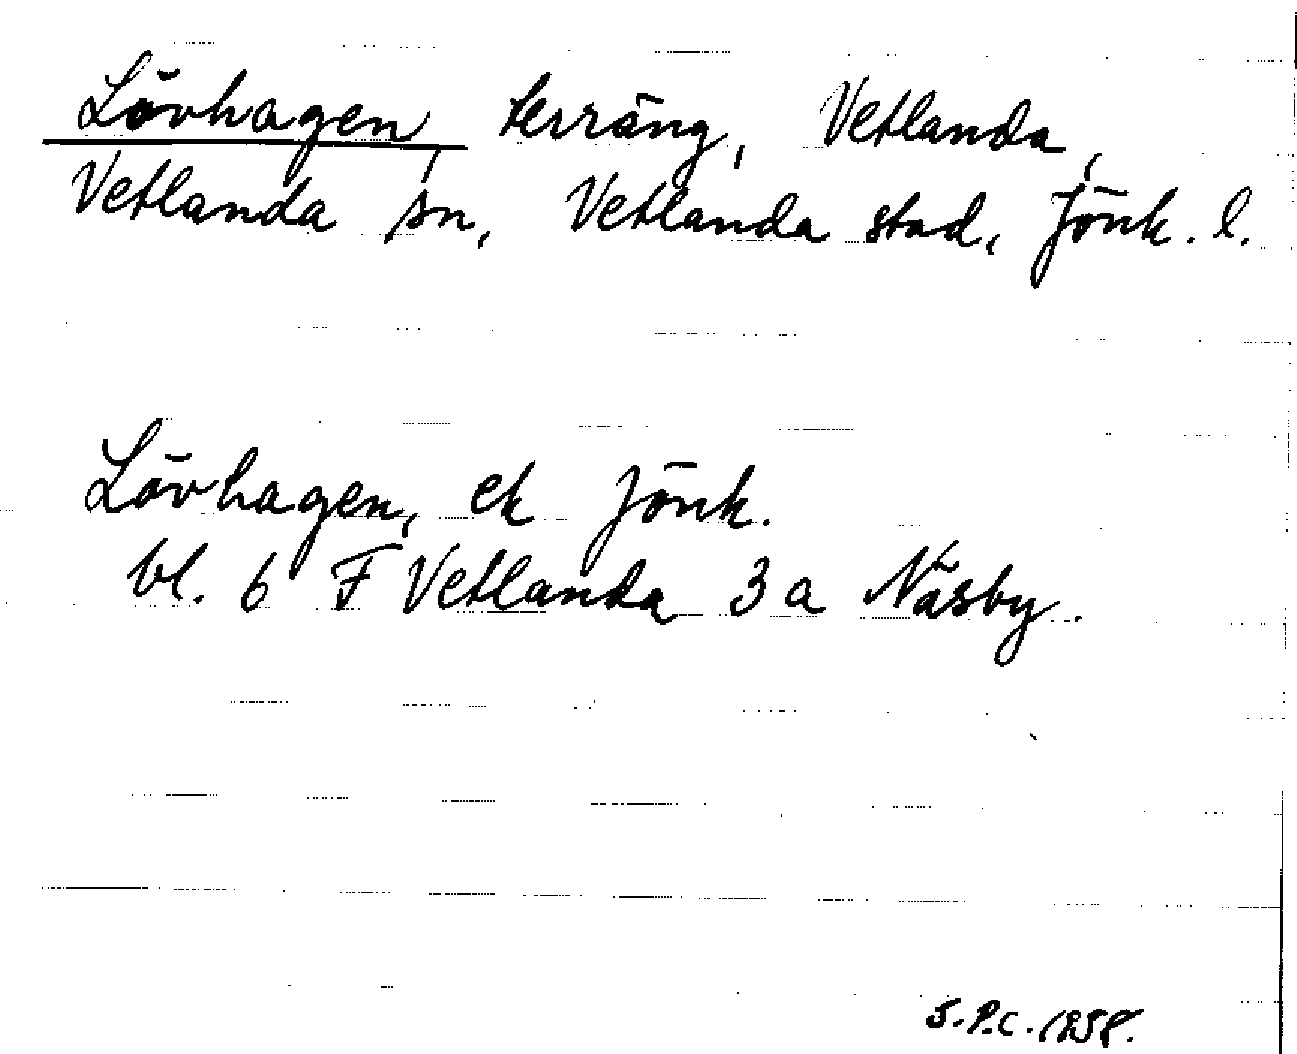 Lövhagen, terräng, Vetlanda,
Vetlanda sn, Vetlanda stad, Jönk. l.
Lövhagen, ek Jönk.
bl. 6 F Vetlanda 3 a Näsby.
S.P.C. 1958.